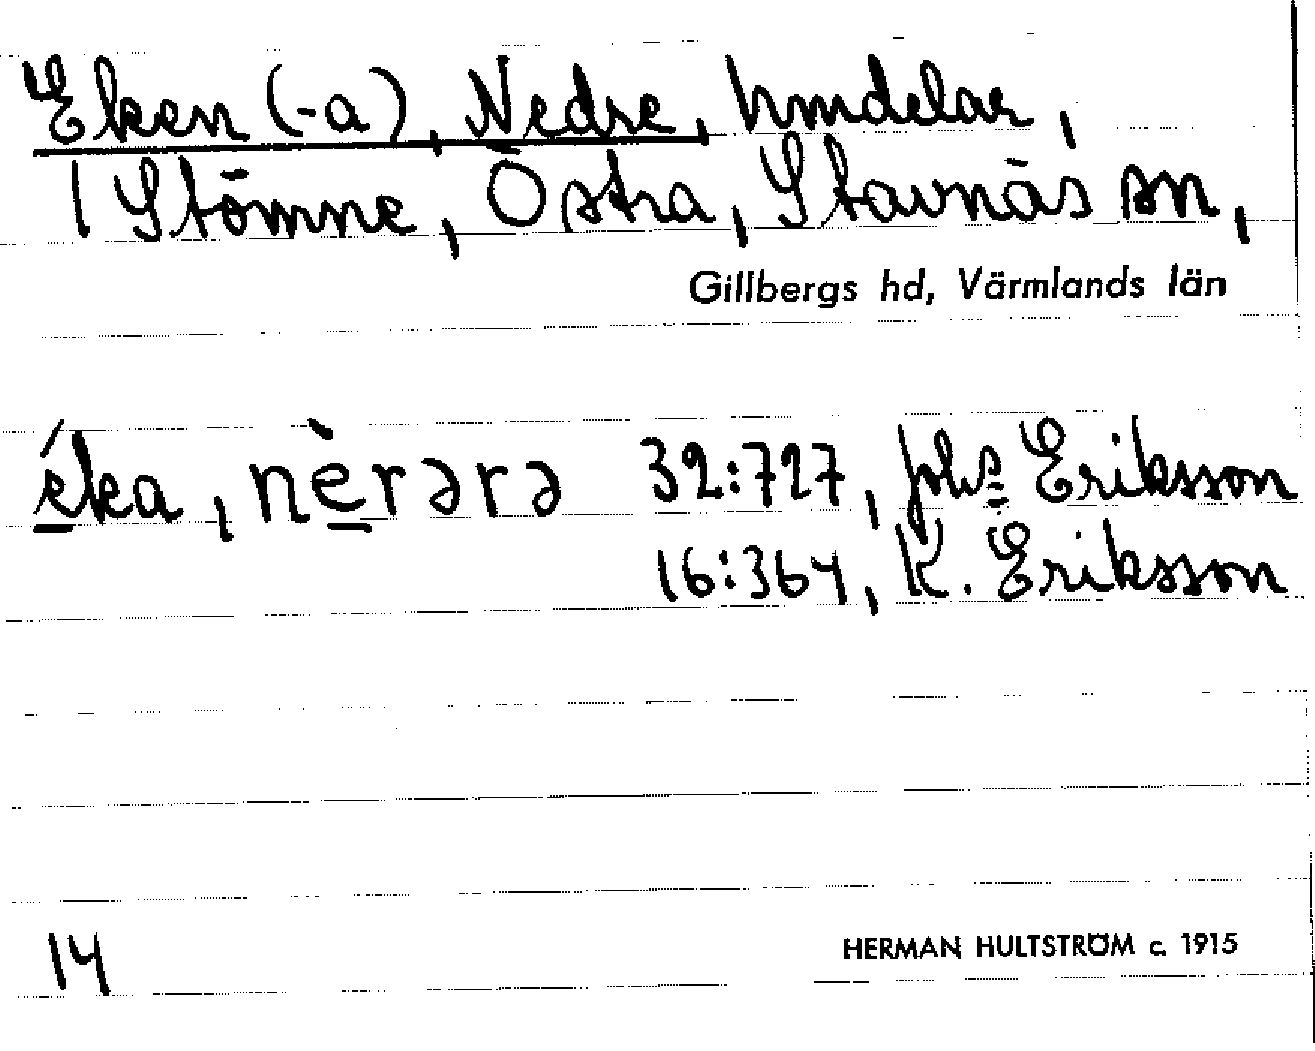 Eken (-a), Nedre, hmdelar,
1 Stömne, Östra, Stavnäs sn,
Gillbergs hd, Värmlands län
é̱ka, nè̱rərə 32:727, Johs Eriksson
16:364, K. Eriksson
14 HERMAN HULTSTRÖM c. 1915